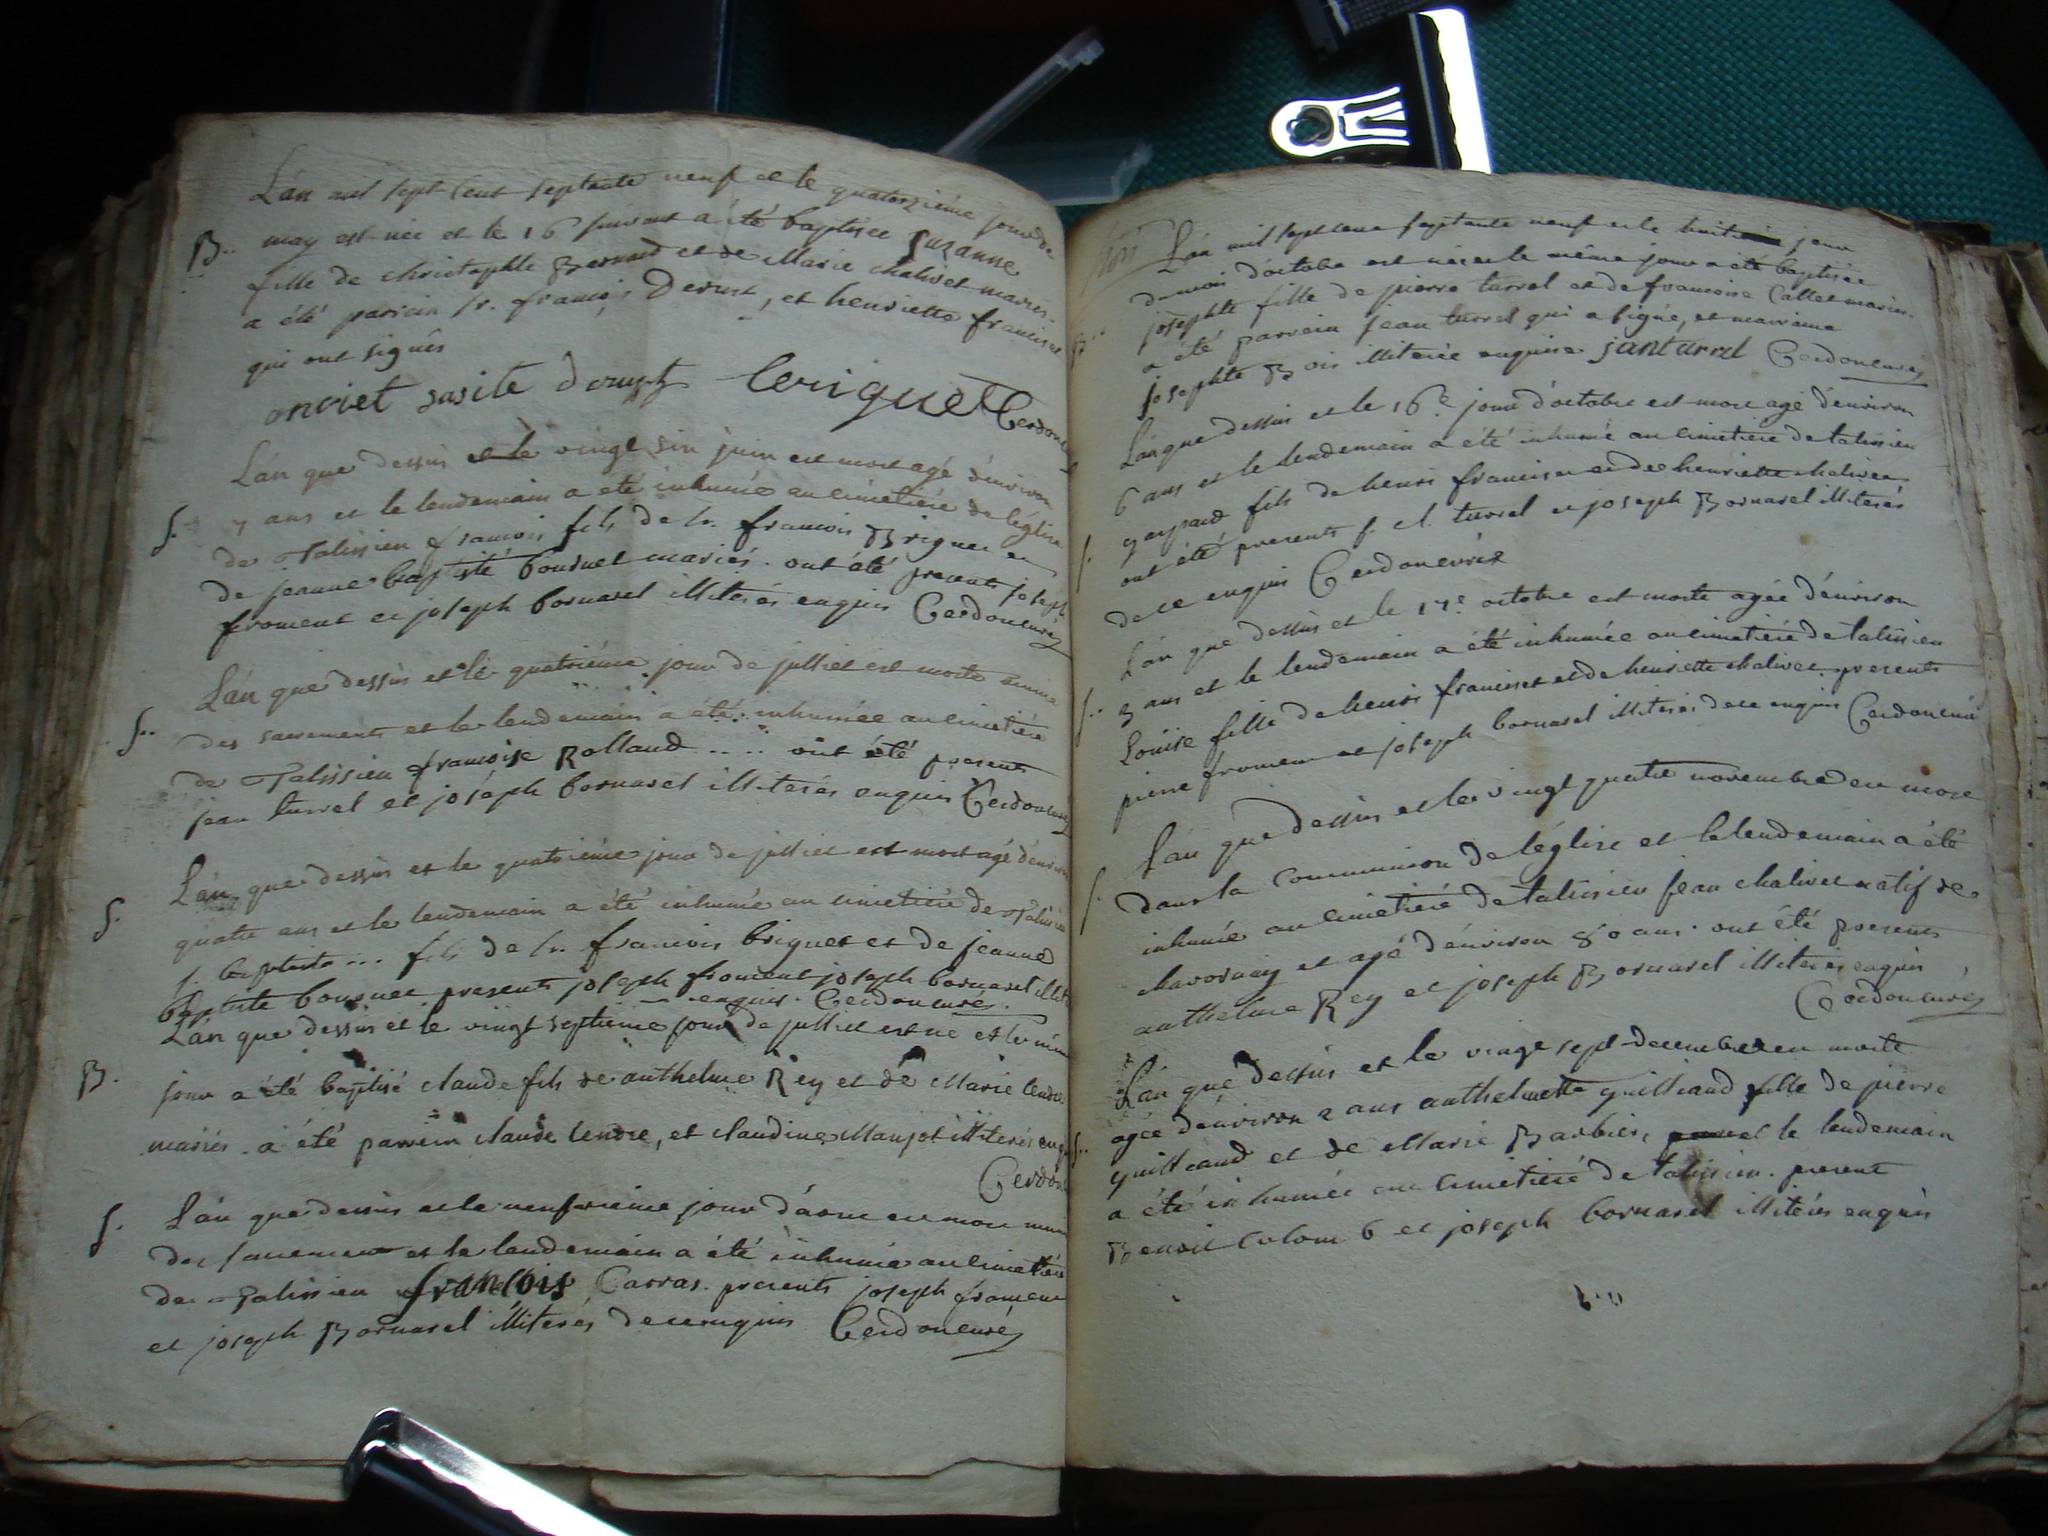 L'an mil sept cent septante neuf et le quatorzième jour de
B.. may est née et le 16 suivant a été baptisée Suzanne
fille de christophle Bernard et de Marie chalivet mariés.
a été parrein sr. françois Derust, et henriette francises
qui ont signés
Cerdon
L'an que dessus et le vingt six juin est mort agé d'environ
S. 7 ans et le lendemain a été inhumé au cimetière de l'église
de Talissieu françois fils de sr. francois Briguet et
de jeanne baptiste bousuet mariés. ont été presents joseph
froment et joseph bornarel illiterés enquis Cerdon curé
L'an que dessus et le quatrième jour de julliet est morte munie
S.. des sacrements et le lendemain a été inhumée au cimetière
de Talissieu francoise Rolland .. .. ont été presents
jean turrel et joseph bornarel illiterés enquis Cerdon curé
L'an que dessus et le quatrième jour de julliet est mort agé d'environ
S. quatre ans et le lendemain a été inhumé au cimetière de Talissieu
j. baptiste ... fils de sr. francois briguet et de jeanne
baptiste bousuet presents joseph froment joseph bornarel illit
enquis. Cerdon curé.
L'an que dessus et le vingt septieme jour de julliet est né et le même
B. jour a été baptisé claude fils de anthelme Rey et de Marie tendre
mariés. a été parrein claude tendre, et claudine Manjot illiterés enq
Cerdon
S. L'an que dessus et le neufvieme jour d'aout est mort muni
des sacrement et le lendemain a été inhumé au cimetière
de Talissieu francois Carras. presents joseph froment
et joseph Bornarel illiterés de ce enquis Cerdon curé
L'an mil sept cent septante neuf et le huit jour
du mois d'octobre est née et le même jour a été baptisée
josephte fille de pierre turrel et de francoise Callet mariés.
B.. a été parrein jean turrel qui a signé, et marreine
josephte Bois illiterée enquise janturrel Cerdon curé
L'an que dessus et le 16e. jour d'octobre est mort agé d'environ
6 ans et le lendemain a été inhumé au cimetiere de talissieu
gaspard fils de henri francises et de henriette chalivet
S. ont été presents j. cl. turrel et joseph Bornarel illiterés
de ce enquis Cerdon curé
L'an que dessus et le 17e. octobre est morte agée d'environ
S.. 3 ans et le lendemain a été inhumée au cimetiere de talissieu
Louise fille de henri francises et de henriette chalivet. presents
pierre froment et joseph bornarel illiterés de ce enquis Cerdon curé
L'an que dessus et le vingt quatre novembre est mort
S. dans la communion de l'église et le lendemain a été
inhumé au cimetière de talissieu jean chalivet natif de
chavornay et agé d'environ 80 ans. ont été presents
anthelme Rey et joseph Bornarel illiterés enquis
Cerdon curé
L'an que dessus et le vingt sept decembre est morte
agée d'environ 2 ans anthelmette guilliand fille de pierre
S.. guilliand et de Marie Barbier, et le lendemain
a été inhumée au cimetière de talissieu. present
Benoit colomb et joseph bornarel illiterés enquis